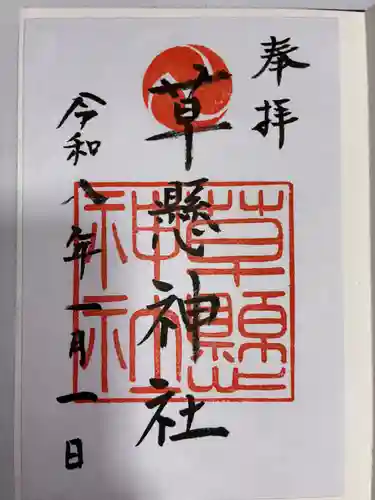 奉拝
草懸神社
草懸
神社
令和八年一月一日